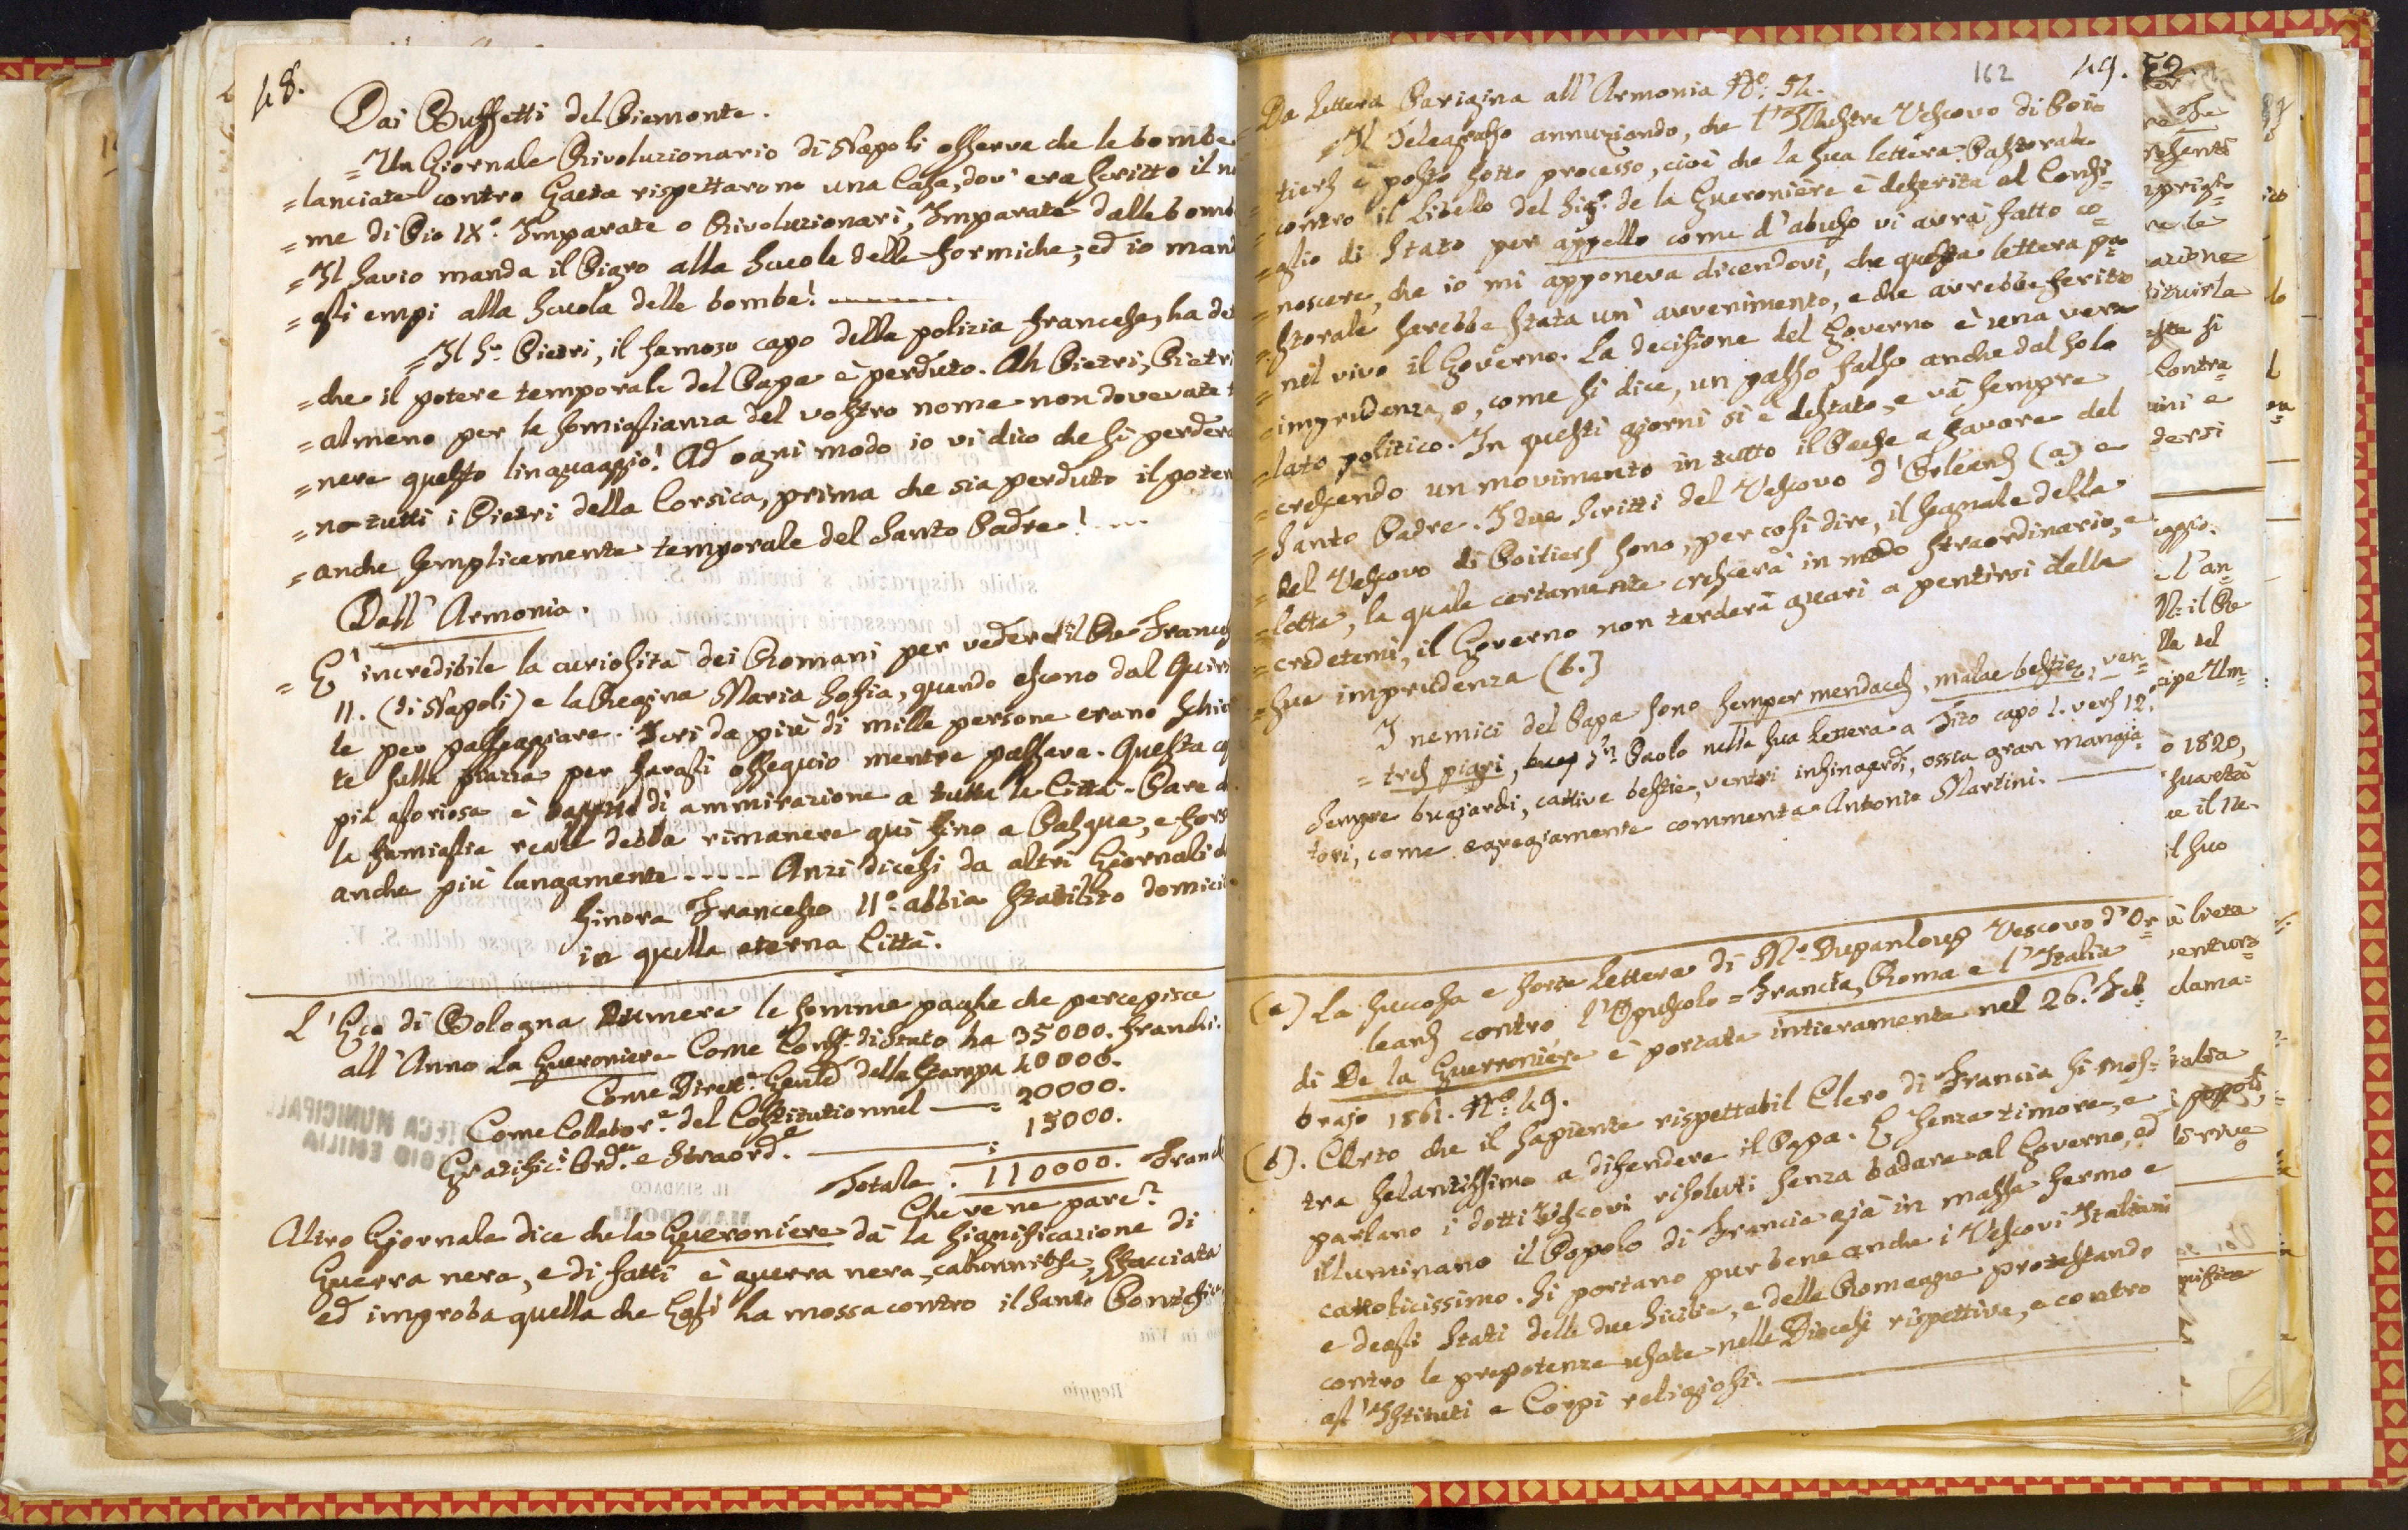 48.
Dai Buffetti del Piemonte.
= Un Giornale Rivoluzionario di Napoli osserva che le bombe
= lanciate contro Gaeta rispettarono una Casa, dov' era scritto il no
= me di Pio IX°. Imparate o Rivoluzionari, Imparate dalle bomb
= Il savio manda il Pigro alla scuola delle formiche; ed io mand
= gli empi alla scuola delle bombe!
= Il Sr. Pietri, il famoso capo della polizia francese, ha det
= che il potere temporale del Papa è perduto. Ah Pietri, Pietri
= almeno per la somiglianza del vostro nome non dovevate t
= nere questo linguaggio! Ad ogni modo io vi dico che si perdera
= no tutti i Pietri della Corsica, prima che sia perduto il poter
= anche semplicemente temporale del Santo Padre!
Dall' Armonia.
= E' incredibile la curiosità dei Romani per vedere il Re Frances
II. (di Napoli) e la Regina Maria Sofia, quando escono dal Quiri
le per passeggiare. Ieri da più di mille persone erano schie
te sulla piazza per fargli ossequio mentre passava. Questa co
pia gloriosa è oggetto di ammirazione a tutta la Città. Pare c
la famiglia reale debba rimanere quì fino a Pasqua, e fors
anche più lungamente ----- Anzi dicesi da altri Giornali c
sinora Francesco II°. abbia stabilito domici
in quella eterna Città.
L' Eco di Bologna numera le somme paghe che percepisce
all' Anno La Gueroniere Come Cons. di Stato ha 35000. franchi.
Come Dirett.e Genle della Stampa 40000.
Come Collabor.e del Costitutionnel — = 20000.
Gratific.i Ord.e e straord.e — : 15000.
Totale . 110000. Franch
Che ve ne pare?
Altro Giornale dice che la Gueroniére dà la significazione di
Guerra nera, e di fatti è guerra nera, calunniosa, sfacciata
ed improba quella che Egli ha mossa contro il Santo Pontefice
162
49.
Da Lettera Parigina all' Armonia N°: 54.
= Il Telegrafo annunziando, che l' Illustre Vescovo di Poi=
= tiers è posto sotto processo, cioè che la sua lettera Pastorale
= contro il Libello del Sig. de la Gueroniére è deferita al Consi=
= glio di Stato per appello come d' abuso vi avrà fatto co=
= noscere, che io mi apponeva dicendovi, che questa lettera pa=
= storale sarebbe stata un' avvenimento, e che avrebbe ferito
= nel vivo il Governo. La decisione del Governo è una vera
= imprudenza, o, come si dice, un passo falso anche dal solo
= lato politico. In questi giorni si è destato, e và sempre
= crescendo un movimento in tutto il Paese a favore del
= Santo Padre. I due scritti del Vescovo d' Orleans (a) e
= del Vescovo di Poitiers sono, per così dire, il segnale della
= lotta, la quale certamente crescerà in modo straordinario, e
= credetemi, il Governo non tarderà guari a pentirsi della
= sua imprudenza (b.)
I nemici del Papa sono semper mendaces, malae bestiae, ven=
= tres pigri, S.n Paolo nella sua Lettera a Tito capo 1. vers 12.
Sempre bugiardi, cattive bestie, ventri infingardi, ossia gran mangia
tori, come egregiamente commenta Antonio Martini.
(a) La succosa e forte Lettera di M.r Dupanloup Vescovo d' Or=
leans contro l' Opuscolo = Francia, Roma e l' Italia
di De la Guerroniére è portata intieramente nel 26. Feb=
brajo 1861. N°: 49.
(b). Certo che il sapiente rispettabil Clero di Francia si mos=
tra zelantissimo a difendere il Papa. E senza timore, e
parlano i dotti Vescovi risoluti senza badare al Governo, ed
illuminano il Popolo di Francia già in massa fermo e
cattolicissimo. Si portano pur bene anche i Vescovi Italiani
e degli Stati delle due Sicilie, e delle Romagne protestando
contro le prepotenze usate nelle Diocesi rispettive, e contro
gl' Istituti e Corpi religiosi.